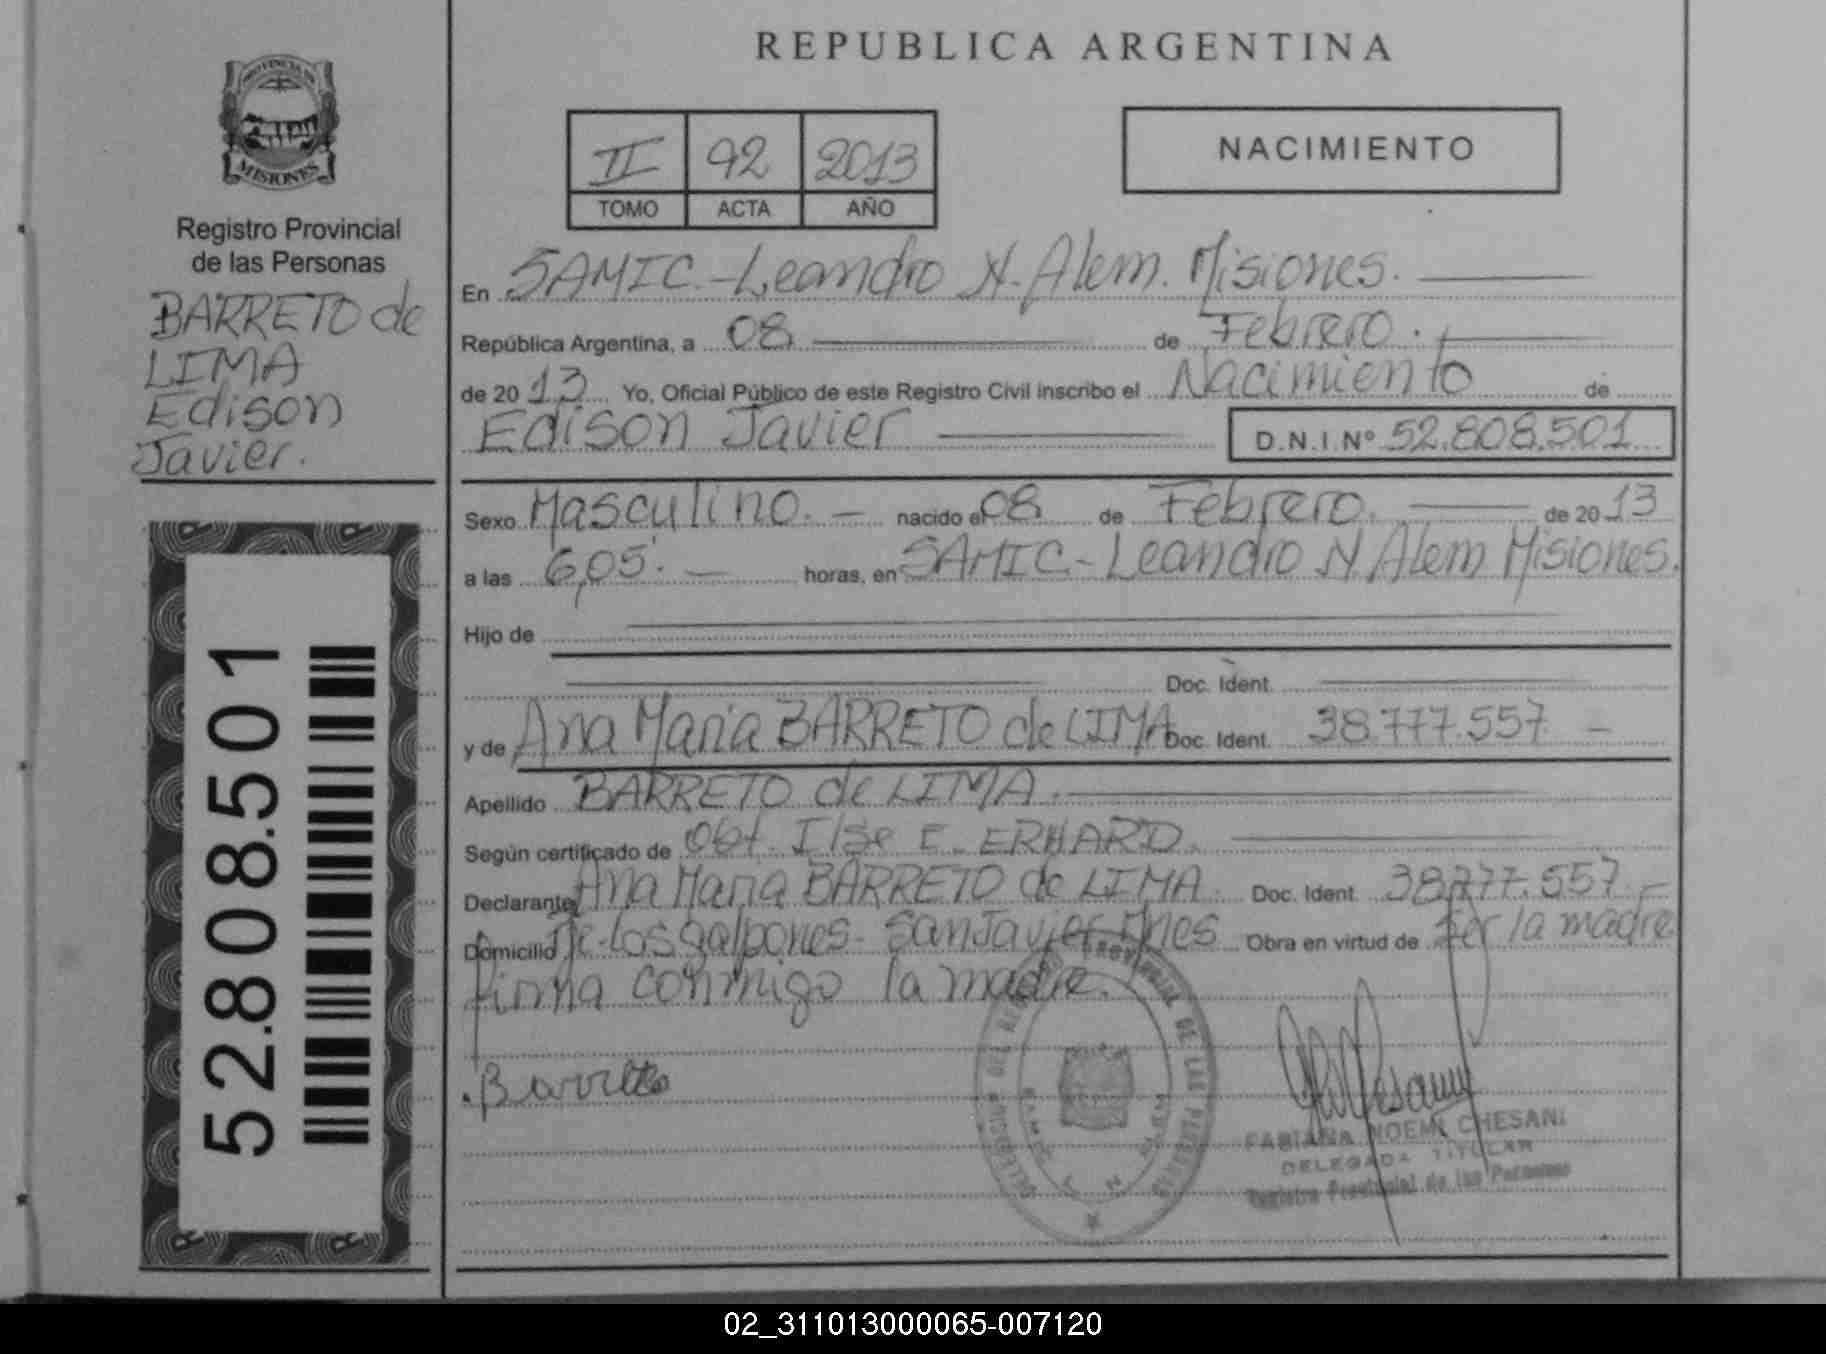 PROVINCIA DE
MISIONES
Registro Provincial
de las Personas
BARRETO de
LIMA
Edison
Javier.
52.808.501
REPUBLICA ARGENTINA
II 92 2013
TOMO ACTA AÑO
NACIMIENTO
En SAMIC.-Leandro N. Alem. Misiones.
República Argentina, a 08 de Febrero.
de 2013 Yo, Oficial Público de este Registro Civil inscribo el Nacimiento de
Edison Javier D.N.I.Nº 52.808.501
Sexo Masculino. nacido el 08 de Febrero. de 2013
a las 6,05'. horas, en SAMIC-Leandro N. Alem Misiones.
Hijo de
Doc. Ident.
y de Ana Maria BARRETO de LIMA Doc. Ident. 38.777.557
Apellido BARRETO de LIMA.
Según certificado de Obt. Ilse E. ERHARD.
Declarante Ana Maria BARRETO de LIMA. Doc. Ident. 38.777.557.-
Domicilio Los galpones- San Javier Mnes Obra en virtud de ser la madre
firma conmigo la madre.
Barretto
FABIANA NOEMI CHESANI
DELEGADA TITULAR
Registro Provincial de las Personas
02_311013000065-007120